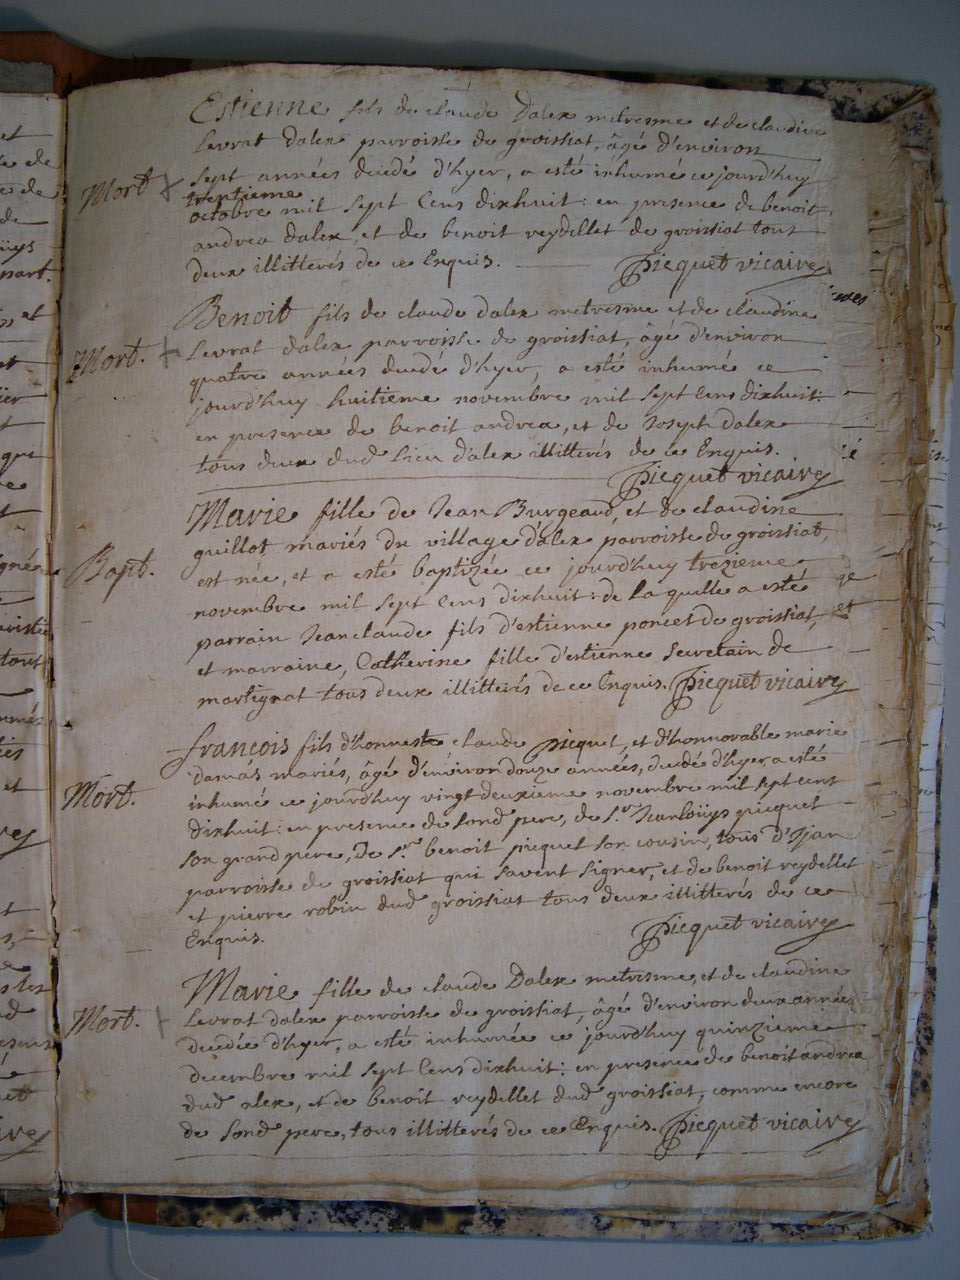 Estienne fils de claude Dalex metresme et de claudine
Levrat dalex parroisse de groissiat, âgé d'environ
Mort sept années decedé d'hyer, a esté inhumé ce jourd'huy
trentieme
octobre mil sept Cens dixhuit: en presence de benoit
andrea dalex, et de benoit reydellet de groissiat tous
deux illitterés de ce Enquis. Picquet vicaire
Benoit fils de claude dalex metresme et de claudine
Mort. Levrat dalex parroisse de groissiat, âgé d'environ
quatre années decedé d'hyer, a esté inhumé ce
jourd'huy huitieme novembre mil sept Cens dixhuit:
en presence de benoit andrea, et de Joseph dalex
tous deux dud Lieu d'alex illitterés de ce Enquis.
Picquet vicaire
Marie fille de Jean Burgeaud, et de claudine
guillot mariés du village d'alex parroisse de groissiat,
Bapt. est née, et a esté baptizée ce jourd'huy trezieme
novembre mil sept Cens dixhuit: de la quelle a esté
parrain Jean claude fils d'estienne poncet de groissiat,
et marraine, Catherine fille d'estienne Secretain de
martignat tous deux illitterés de ce Enquis. Picquet vicaire
françois fils d'honneste claude picquet, et d'honnorable marie
damas mariés, âgé d'environ douze années, decedé d'hyer a esté
Mort. inhumé ce jourd'huy vingt deuxieme novembre mil sept cent
dixhuit: en presence de sond pere, de Sr. Jean loüys picquet
son grand pere, De Sr. benoit picquet son cousin, tous d'Ijan
parroisse de groissiat qui savent signer, et de benoit reydellet
et pierre robin dud groissiat tous deux illitterés de ce
Enquis. Picquet vicaire
Marie fille de claude Dalex metresme, et de claudine
Mort. Levrat dalex parroisse de groissiat, âgé d'environ deux années
decedée d'hyer, a esté inhumée ce jourd'huy quinzieme
decembre mil sept Cens dixhuit: en presence de benoit andrea
dud alex, et de benoit reydellet dud groissiat, comme encore
de sond pere, tous illitterés de ce Enquis. Picquet vicaire